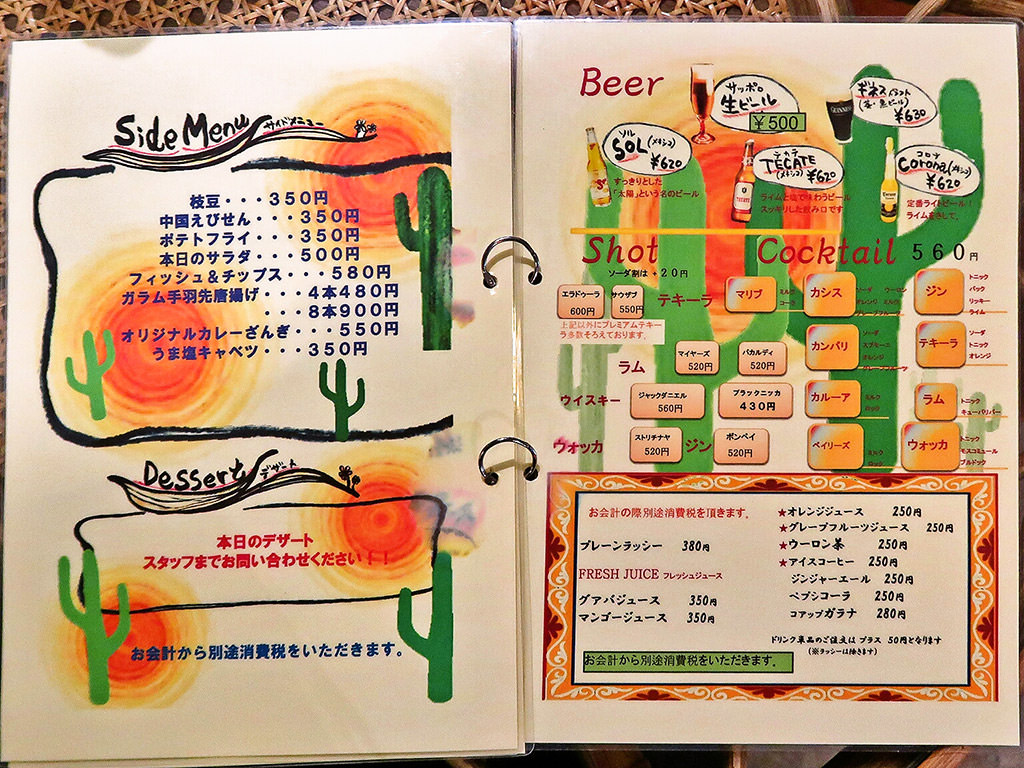 Side Menu サイドメニュー
枝豆・・・350円
中国えびせん・・・350円
ポテトフライ・・・350円
本日のサラダ・・・500円
フィッシュ&チップス・・・580円
ガラム手羽先唐揚げ・・・4本480円
・・・8本900円
オリジナルカレーざんぎ・・・550円
うま塩キャベツ・・・350円
Dessert デザート
本日のデザート
スタッフまでお問い合わせください!!
お会計から別途消費税をいただきます。
Beer
サッポロ
生ビール
¥500
ギネス
GUINNESS
¥630
ソル
SOL (メキシコ)
¥620
すっきりとした
「太陽」という名のビール
テカテ
TECATE
(メキシコ) ¥620
ライムと塩で味わうビール
スッキリした飲み口です
コロナ
Corona (メキシコ)
¥620
定番ライトビール!
ライムをさして。
Shot
ソーダ割は +20円
エラドゥーラ
600円
サウザブ
550円
テキーラ
上記以外にプレミアムテキー
ラ多数そろえております。
ラム
マイヤーズ
520円
バカルディ
520円
ウイスキー
ジャックダニエル
560円
ブラックニッカ
430円
ウォッカ
ストリチナヤ
520円
ジン
ボンベイ
520円
Cocktail 560円
マリブ
ミルク
コーラ
カシス
ソーダ ウーロン
オレンジ ミルク
グレープフルーツ
ジン
トニック
バック
リッキー
ライム
カンパリ
ソーダ
スプモーニ
オレンジ
グレープフルーツ
テキーラ
ソーダ
トニック
オレンジ
カルーア
ミルク
ロック
ラム
トニック
キューバリバー
ベイリーズ
ミルク
ロック
ウォッカ
トニック
モスコミュール
ブルドック
お会計の際別途消費税を頂きます。
プレーンラッシー 380円
FRESH JUICE フレッシュジュース
グアバジュース 350円
マンゴージュース 350円
★オレンジジュース 250円
★グレープフルーツジュース 250円
★ウーロン茶 250円
★アイスコーヒー 250円
ジンジャーエール 250円
ペプシコーラ 250円
コアップガラナ 280円
ドリンク単品のご注文は プラス 50円となります
(※ラッシーは除きます)
お会計から別途消費税をいただきます。